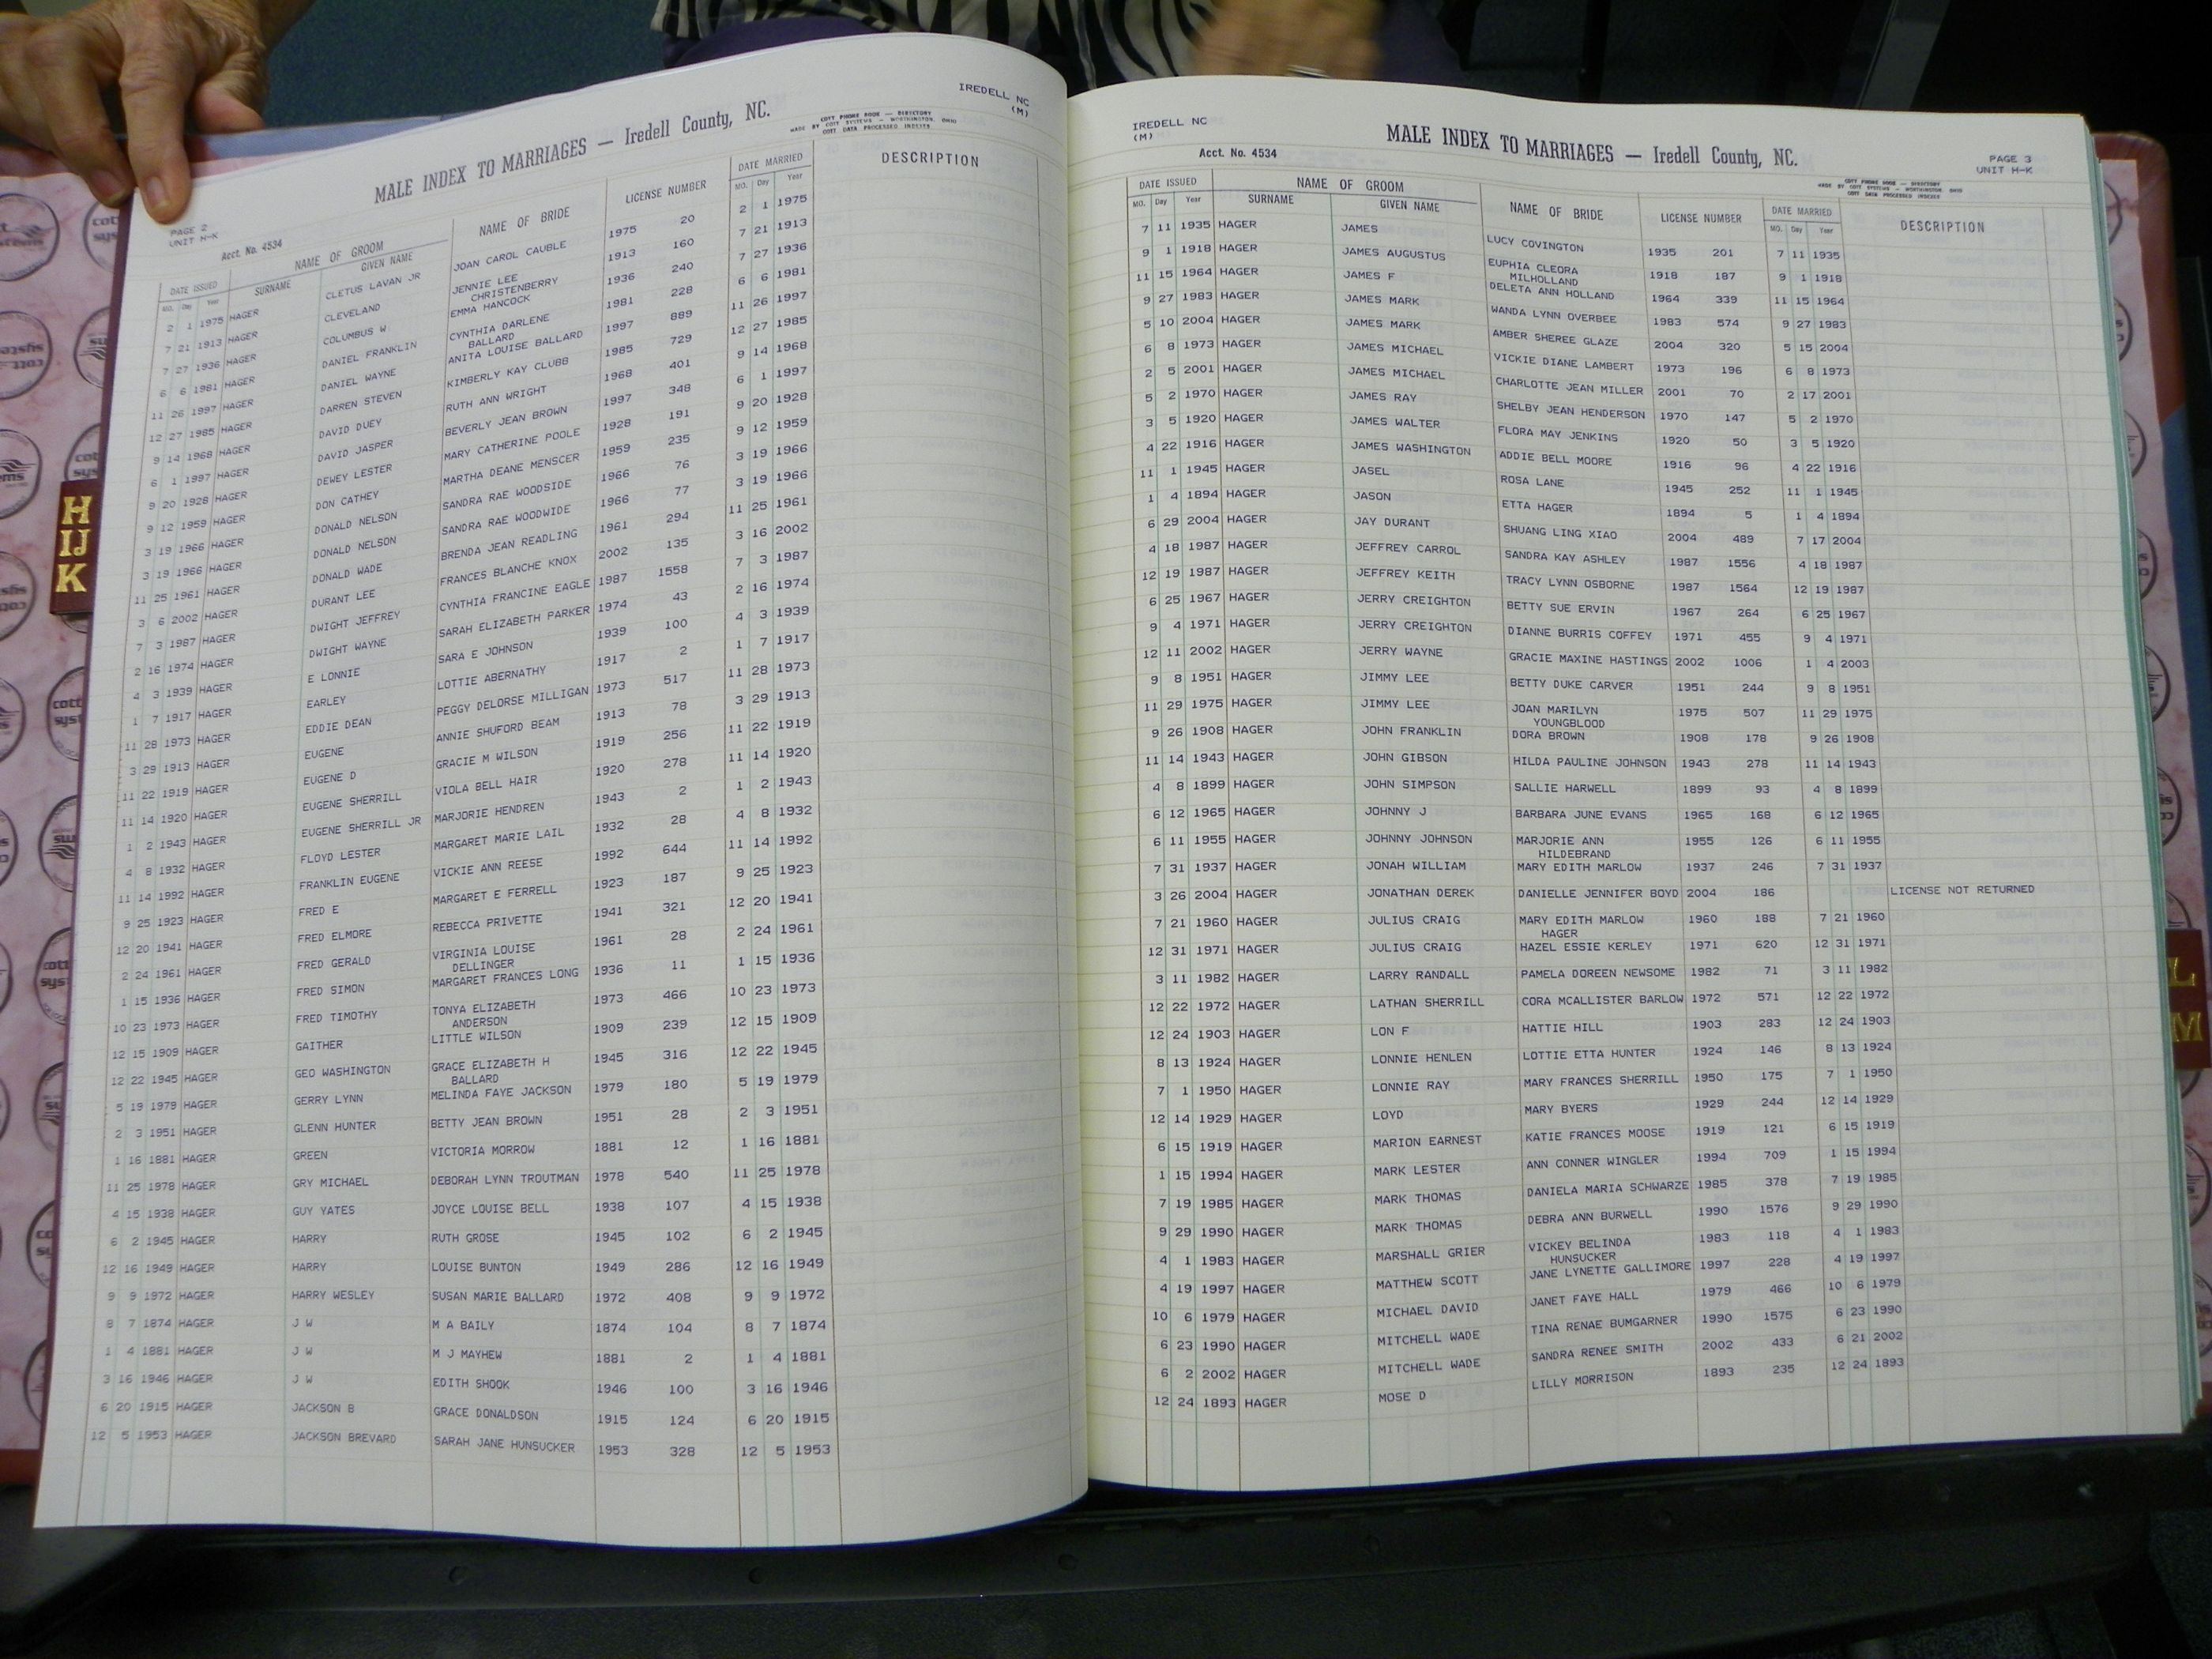 PAGE 2
UNIT H-K
Acct. No. 4534
MALE INDEX TO MARRIAGES — Iredell County, NC.
COTT PHONE BOOK — DIRECTORY
MADE BY COTT SYSTEMS — WORTHINGTON, OHIO
COTT DATA PROCESSED INDEXES
IREDELL NC
(M)
DATE ISSUED NAME OF GROOM NAME OF BRIDE LICENSE NUMBER DATE MARRIED DESCRIPTION
MO. Day Year SURNAME GIVEN NAME MO. Day Year
2 1 1975 HAGER CLETUS LAVAN JR JOAN CAROL CAUBLE 1975 20 2 1 1975
7 21 1913 HAGER CLEVELAND JENNIE LEE 1913 160 7 21 1913
CHRISTENBERRY
7 27 1936 HAGER COLUMBUS W EMMA HANCOCK 1936 240 7 27 1936
6 6 1981 HAGER DANIEL FRANKLIN CYNTHIA DARLENE 1981 228 6 6 1981
BALLARD
11 26 1997 HAGER DANIEL WAYNE ANITA LOUISE BALLARD 1997 889 11 26 1997
12 27 1985 HAGER DARREN STEVEN KIMBERLY KAY CLUBB 1985 729 12 27 1985
9 14 1968 HAGER DAVID DUEY RUTH ANN WRIGHT 1968 401 9 14 1968
6 1 1997 HAGER DAVID JASPER BEVERLY JEAN BROWN 1997 348 6 1 1997
9 20 1928 HAGER DEWEY LESTER MARY CATHERINE POOLE 1928 191 9 20 1928
9 12 1959 HAGER DON CATHEY MARTHA DEANE MENSCER 1959 235 9 12 1959
3 19 1966 HAGER DONALD NELSON SANDRA RAE WOODSIDE 1966 76 3 19 1966
3 19 1966 HAGER DONALD NELSON SANDRA RAE WOODWIDE 1966 77 3 19 1966
11 25 1961 HAGER DONALD WADE BRENDA JEAN READLING 1961 294 11 25 1961
3 6 2002 HAGER DURANT LEE FRANCES BLANCHE KNOX 2002 135 3 16 2002
7 3 1987 HAGER DWIGHT JEFFREY CYNTHIA FRANCINE EAGLE 1987 1558 7 3 1987
2 16 1974 HAGER DWIGHT WAYNE SARAH ELIZABETH PARKER 1974 43 2 16 1974
4 3 1939 HAGER E LONNIE SARA E JOHNSON 1939 100 4 3 1939
1 7 1917 HAGER EARLEY LOTTIE ABERNATHY 1917 2 1 7 1917
11 28 1973 HAGER EDDIE DEAN PEGGY DELORSE MILLIGAN 1973 517 11 28 1973
3 29 1913 HAGER EUGENE ANNIE SHUFORD BEAM 1913 78 3 29 1913
11 22 1919 HAGER EUGENE D GRACIE M WILSON 1919 256 11 22 1919
11 14 1920 HAGER EUGENE SHERRILL VIOLA BELL HAIR 1920 278 11 14 1920
1 2 1943 HAGER EUGENE SHERRILL JR MARJORIE HENDREN 1943 2 1 2 1943
4 8 1932 HAGER FLOYD LESTER MARGARET MARIE LAIL 1932 28 4 8 1932
11 14 1992 HAGER FRANKLIN EUGENE VICKIE ANN REESE 1992 644 11 14 1992
9 25 1923 HAGER FRED E MARGARET E FERRELL 1923 187 9 25 1923
12 20 1941 HAGER FRED ELMORE REBECCA PRIVETTE 1941 321 12 20 1941
2 24 1961 HAGER FRED GERALD VIRGINIA LOUISE 1961 28 2 24 1961
DELLINGER
1 15 1936 HAGER FRED SIMON MARGARET FRANCES LONG 1936 11 1 15 1936
10 23 1973 HAGER FRED TIMOTHY TONYA ELIZABETH 1973 466 10 23 1973
ANDERSON
12 15 1909 HAGER GAITHER LITTLE WILSON 1909 239 12 15 1909
12 22 1945 HAGER GEO WASHINGTON GRACE ELIZABETH H 1945 316 12 22 1945
BALLARD
5 19 1979 HAGER GERRY LYNN MELINDA FAYE JACKSON 1979 180 5 19 1979
2 3 1951 HAGER GLENN HUNTER BETTY JEAN BROWN 1951 28 2 3 1951
1 16 1881 HAGER GREEN VICTORIA MORROW 1881 12 1 16 1881
11 25 1978 HAGER GRY MICHAEL DEBORAH LYNN TROUTMAN 1978 540 11 25 1978
4 15 1938 HAGER GUY YATES JOYCE LOUISE BELL 1938 107 4 15 1938
6 2 1945 HAGER HARRY RUTH GROSE 1945 102 6 2 1945
12 16 1949 HAGER HARRY LOUISE BUNTON 1949 286 12 16 1949
9 9 1972 HAGER HARRY WESLEY SUSAN MARIE BALLARD 1972 408 9 9 1972
8 7 1874 HAGER J W M A BAILY 1874 104 8 7 1874
1 4 1881 HAGER J W M J MAYHEW 1881 2 1 4 1881
3 16 1946 HAGER J W EDITH SHOOK 1946 100 3 16 1946
6 20 1915 HAGER JACKSON B GRACE DONALDSON 1915 124 6 20 1915
12 5 1953 HAGER JACKSON BREVARD SARAH JANE HUNSUCKER 1953 328 12 5 1953
IREDELL NC
(M)
Acct. No. 4534
MALE INDEX TO MARRIAGES — Iredell County, NC.
PAGE 3
UNIT H-K
COTT PHONE BOOK — DIRECTORY
MADE BY COTT SYSTEMS — WORTHINGTON OHIO
COTT DATA PROCESSED INDEXES
DATE ISSUED NAME OF GROOM NAME OF BRIDE LICENSE NUMBER DATE MARRIED DESCRIPTION
MO. Day Year SURNAME GIVEN NAME MO. Day Year
7 11 1935 HAGER JAMES LUCY COVINGTON 1935 201 7 11 1935
9 1 1918 HAGER JAMES AUGUSTUS EUPHIA CLEORA 1918 187 9 1 1918
MILHOLLAND
11 15 1964 HAGER JAMES F DELETA ANN HOLLAND 1964 339 11 15 1964
9 27 1983 HAGER JAMES MARK WANDA LYNN OVERBEE 1983 574 9 27 1983
5 10 2004 HAGER JAMES MARK AMBER SHEREE GLAZE 2004 320 5 15 2004
6 8 1973 HAGER JAMES MICHAEL VICKIE DIANE LAMBERT 1973 196 6 8 1973
2 5 2001 HAGER JAMES MICHAEL CHARLOTTE JEAN MILLER 2001 70 2 17 2001
5 2 1970 HAGER JAMES RAY SHELBY JEAN HENDERSON 1970 147 5 2 1970
3 5 1920 HAGER JAMES WALTER FLORA MAY JENKINS 1920 50 3 5 1920
4 22 1916 HAGER JAMES WASHINGTON ADDIE BELL MOORE 1916 96 4 22 1916
11 1 1945 HAGER JASEL ROSA LANE 1945 252 11 1 1945
1 4 1894 HAGER JASON ETTA HAGER 1894 5 1 4 1894
6 29 2004 HAGER JAY DURANT SHUANG LING XIAO 2004 489 7 17 2004
4 18 1987 HAGER JEFFREY CARROL SANDRA KAY ASHLEY 1987 1556 4 18 1987
12 19 1987 HAGER JEFFREY KEITH TRACY LYNN OSBORNE 1987 1564 12 19 1987
6 25 1967 HAGER JERRY CREIGHTON BETTY SUE ERVIN 1967 264 6 25 1967
9 4 1971 HAGER JERRY CREIGHTON DIANNE BURRIS COFFEY 1971 455 9 4 1971
12 11 2002 HAGER JERRY WAYNE GRACIE MAXINE HASTINGS 2002 1006 1 4 2003
9 8 1951 HAGER JIMMY LEE BETTY DUKE CARVER 1951 244 9 8 1951
11 29 1975 HAGER JIMMY LEE JOAN MARILYN 1975 507 11 29 1975
YOUNGBLOOD
9 26 1908 HAGER JOHN FRANKLIN DORA BROWN 1908 178 9 26 1908
11 14 1943 HAGER JOHN GIBSON HILDA PAULINE JOHNSON 1943 278 11 14 1943
4 8 1899 HAGER JOHN SIMPSON SALLIE HARWELL 1899 93 4 8 1899
6 12 1965 HAGER JOHNNY J BARBARA JUNE EVANS 1965 168 6 12 1965
6 11 1955 HAGER JOHNNY JOHNSON MARJORIE ANN 1955 126 6 11 1955
HILDEBRAND
7 31 1937 HAGER JONAH WILLIAM MARY EDITH MARLOW 1937 246 7 31 1937
3 26 2004 HAGER JONATHAN DEREK DANIELLE JENNIFER BOYD 2004 186 LICENSE NOT RETURNED
7 21 1960 HAGER JULIUS CRAIG MARY EDITH MARLOW 1960 188 7 21 1960
HAGER
12 31 1971 HAGER JULIUS CRAIG HAZEL ESSIE KERLEY 1971 620 12 31 1971
3 11 1982 HAGER LARRY RANDALL PAMELA DOREEN NEWSOME 1982 71 3 11 1982
12 22 1972 HAGER LATHAN SHERRILL CORA MCALLISTER BARLOW 1972 571 12 22 1972
12 24 1903 HAGER LON F HATTIE HILL 1903 283 12 24 1903
8 13 1924 HAGER LONNIE HENLEN LOTTIE ETTA HUNTER 1924 146 8 13 1924
7 1 1950 HAGER LONNIE RAY MARY FRANCES SHERRILL 1950 175 7 1 1950
12 14 1929 HAGER LOYD MARY BYERS 1929 244 12 14 1929
6 15 1919 HAGER MARION EARNEST KATIE FRANCES MOOSE 1919 121 6 15 1919
1 15 1994 HAGER MARK LESTER ANN CONNER WINGLER 1994 709 1 15 1994
7 19 1985 HAGER MARK THOMAS DANIELA MARIA SCHWARZE 1985 378 7 19 1985
9 29 1990 HAGER MARK THOMAS DEBRA ANN BURWELL 1990 1576 9 29 1990
4 1 1983 HAGER MARSHALL GRIER VICKEY BELINDA 1983 118 4 1 1983
HUNSUCKER
4 19 1997 HAGER MATTHEW SCOTT JANE LYNETTE GALLIMORE 1997 228 4 19 1997
10 6 1979 HAGER MICHAEL DAVID JANET FAYE HALL 1979 466 10 6 1979
6 23 1990 HAGER MITCHELL WADE TINA RENAE BUMGARNER 1990 1575 6 23 1990
6 2 2002 HAGER MITCHELL WADE SANDRA RENEE SMITH 2002 433 6 21 2002
12 24 1893 HAGER MOSE D LILLY MORRISON 1893 235 12 24 1893
H
IJ
K
L
M